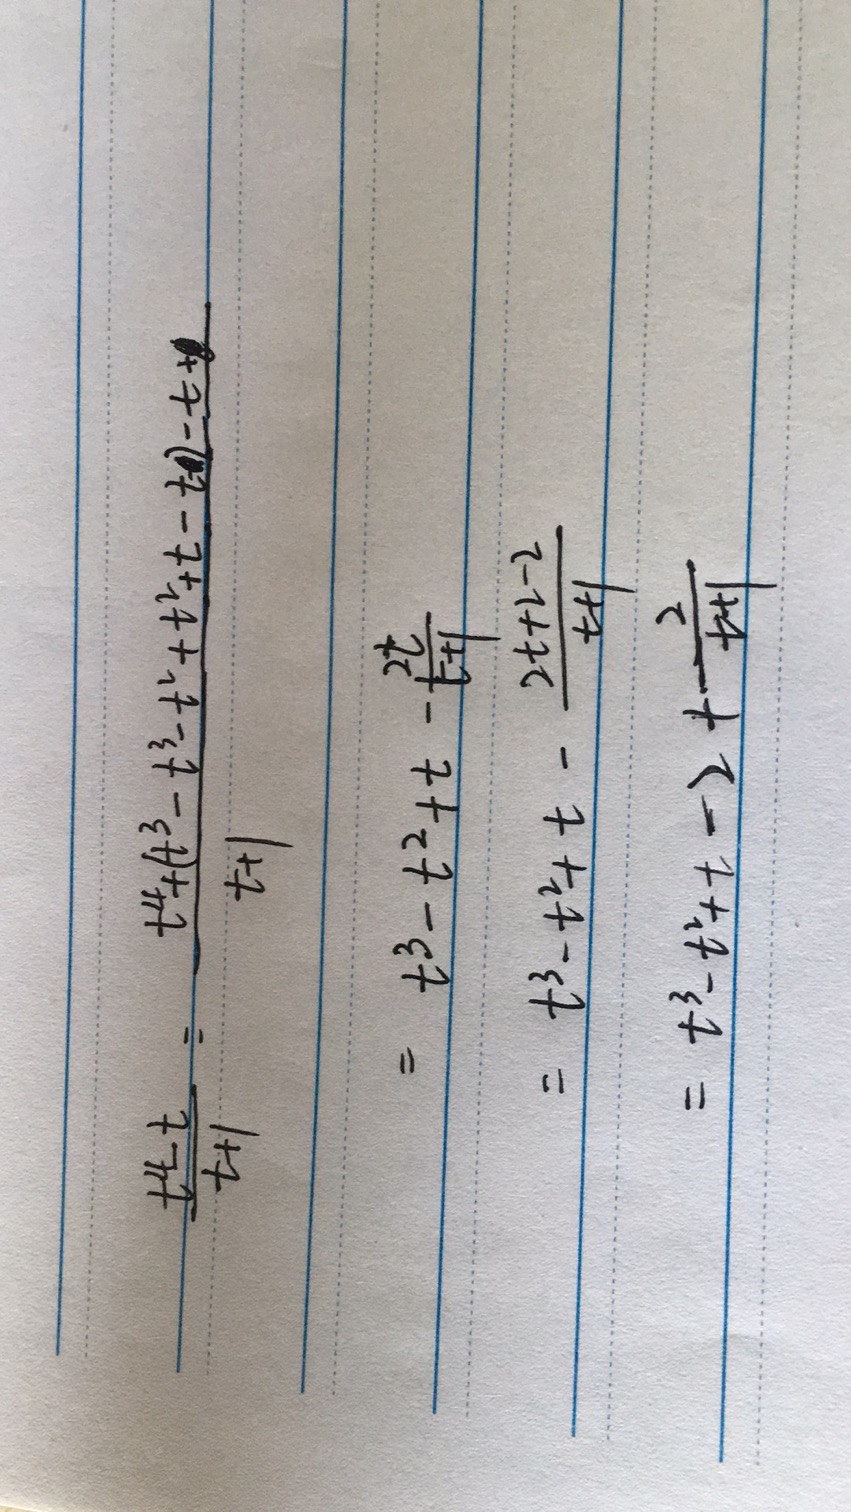 (t⁴-t)/(t+1) = (t⁴+t³-t³-t²+t²+t-t-t)/(t+1)
= t³-t²+t - 2t/(t+1)
= t³-t²+t - (2t+2-2)/(t+1)
= t³-t²+t-2+ 2/(t+1)